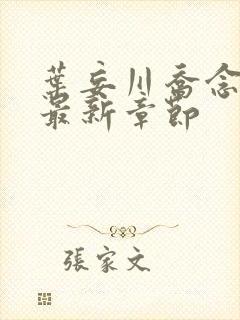 葉妄川喬念
最新章節
張家文